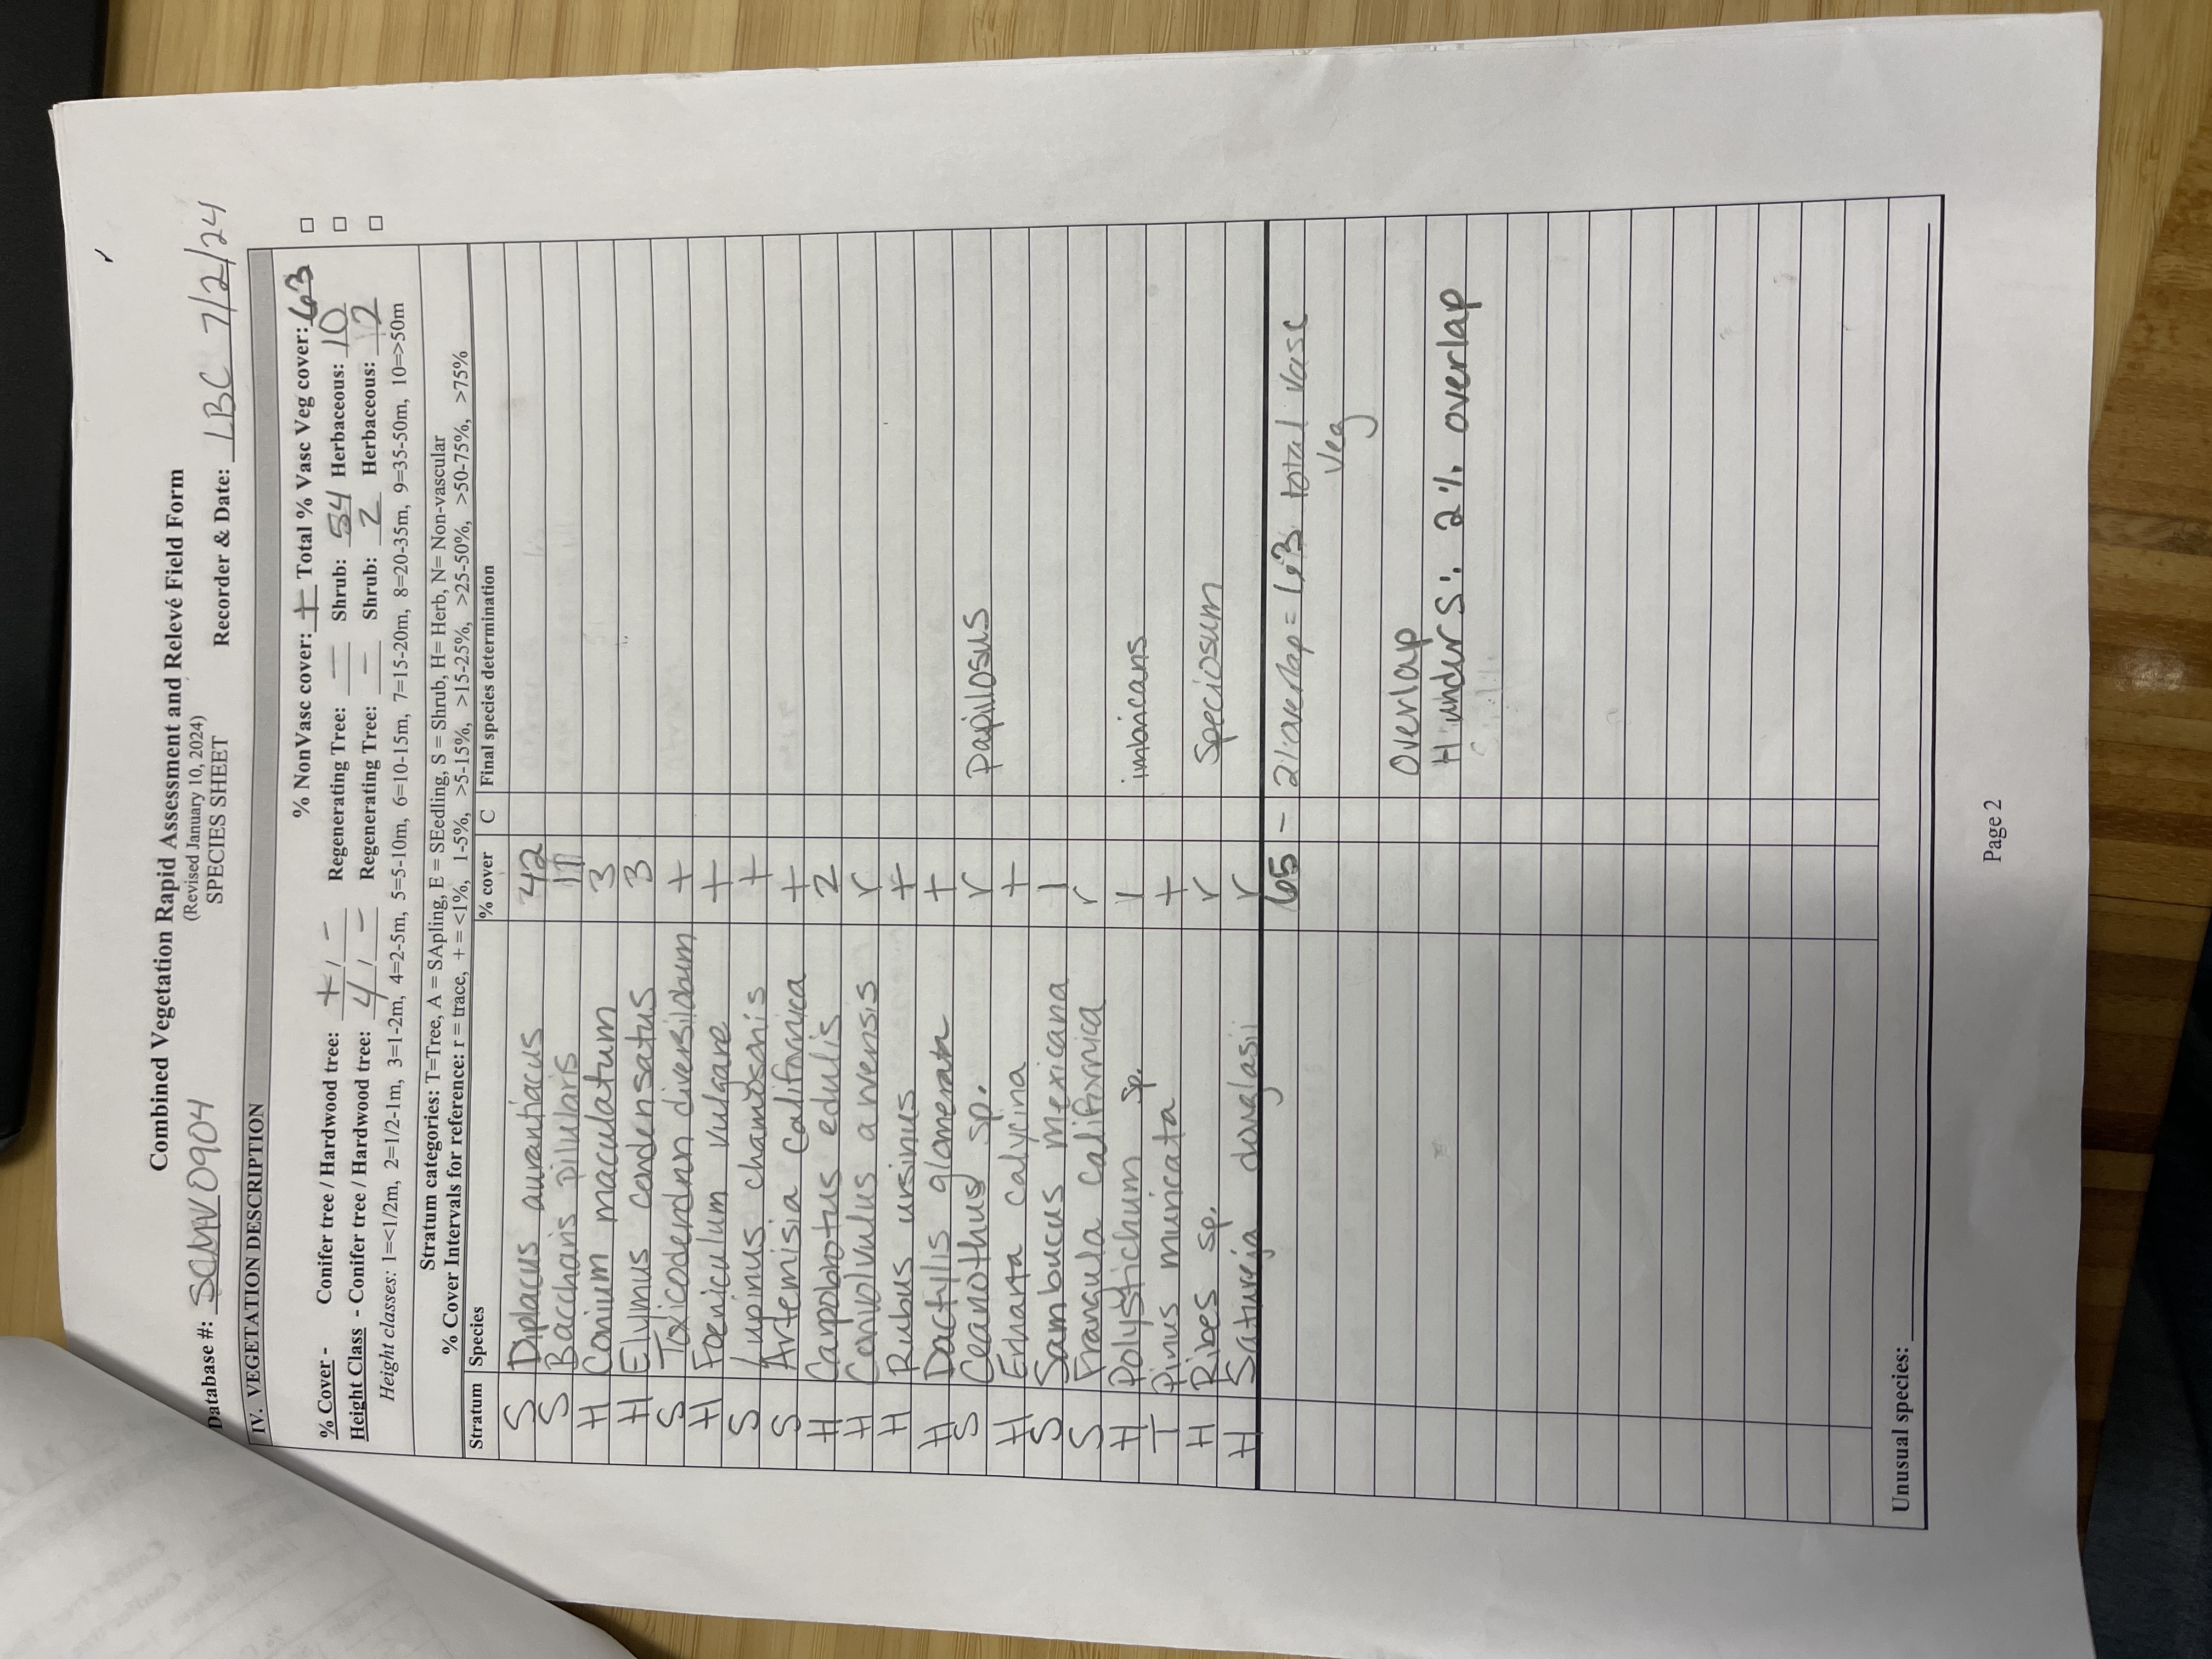 Combined Vegetation Rapid Assessment and Relevé Field Form
(Revised January 10, 2024)
SPECIES SHEET
Database #: SCMV0904 Recorder & Date: LBC 7/2/24
IV. VEGETATION DESCRIPTION
% NonVasc cover: + Total % Vasc Veg cover: 63
% Cover - Conifer tree / Hardwood tree: + / - Regenerating Tree: — Shrub: 54 Herbaceous: 10
Height Class - Conifer tree / Hardwood tree: 4 / - Regenerating Tree: - Shrub: 2 Herbaceous: 2
Height classes: 1=<1/2m, 2=1/2-1m, 3=1-2m, 4=2-5m, 5=5-10m, 6=10-15m, 7=15-20m, 8=20-35m, 9=35-50m, 10=>50m
Stratum categories: T=Tree, A = SApling, E = SEedling, S = Shrub, H= Herb, N= Non-vascular
% Cover Intervals for reference: r = trace, + = <1%, 1-5%, >5-15%, >15-25%, >25-50%, >50-75%, >75%
Stratum Species % cover C Final species determination
S Diplacus aurantiacus 42
S Baccharis pilularis 11
H Conium maculatum 3
H Elymus condensatus 3
S Toxicodendron diversilobum +
H Foeniculum vulgare +
S Lupinus chamissonis +
S Artemisia californica +
H Carpobrotus edulis 2
H Convolvulus arvensis r
H Rubus ursinus +
H Dactylis glomerata +
S Ceanothus sp. r papillosus
H Erharta calycina +
S Sambucus mexicana 1
S Frangula californica r
H Polystichum sp. 1 imbricans
T Pinus muricata +
H Ribes sp. r speciosum
H Satureja douglasii r
65 - 2% overlap = 63 total vasc
veg
Overlap
H under S: 2% overlap
Unusual species:
Page 2